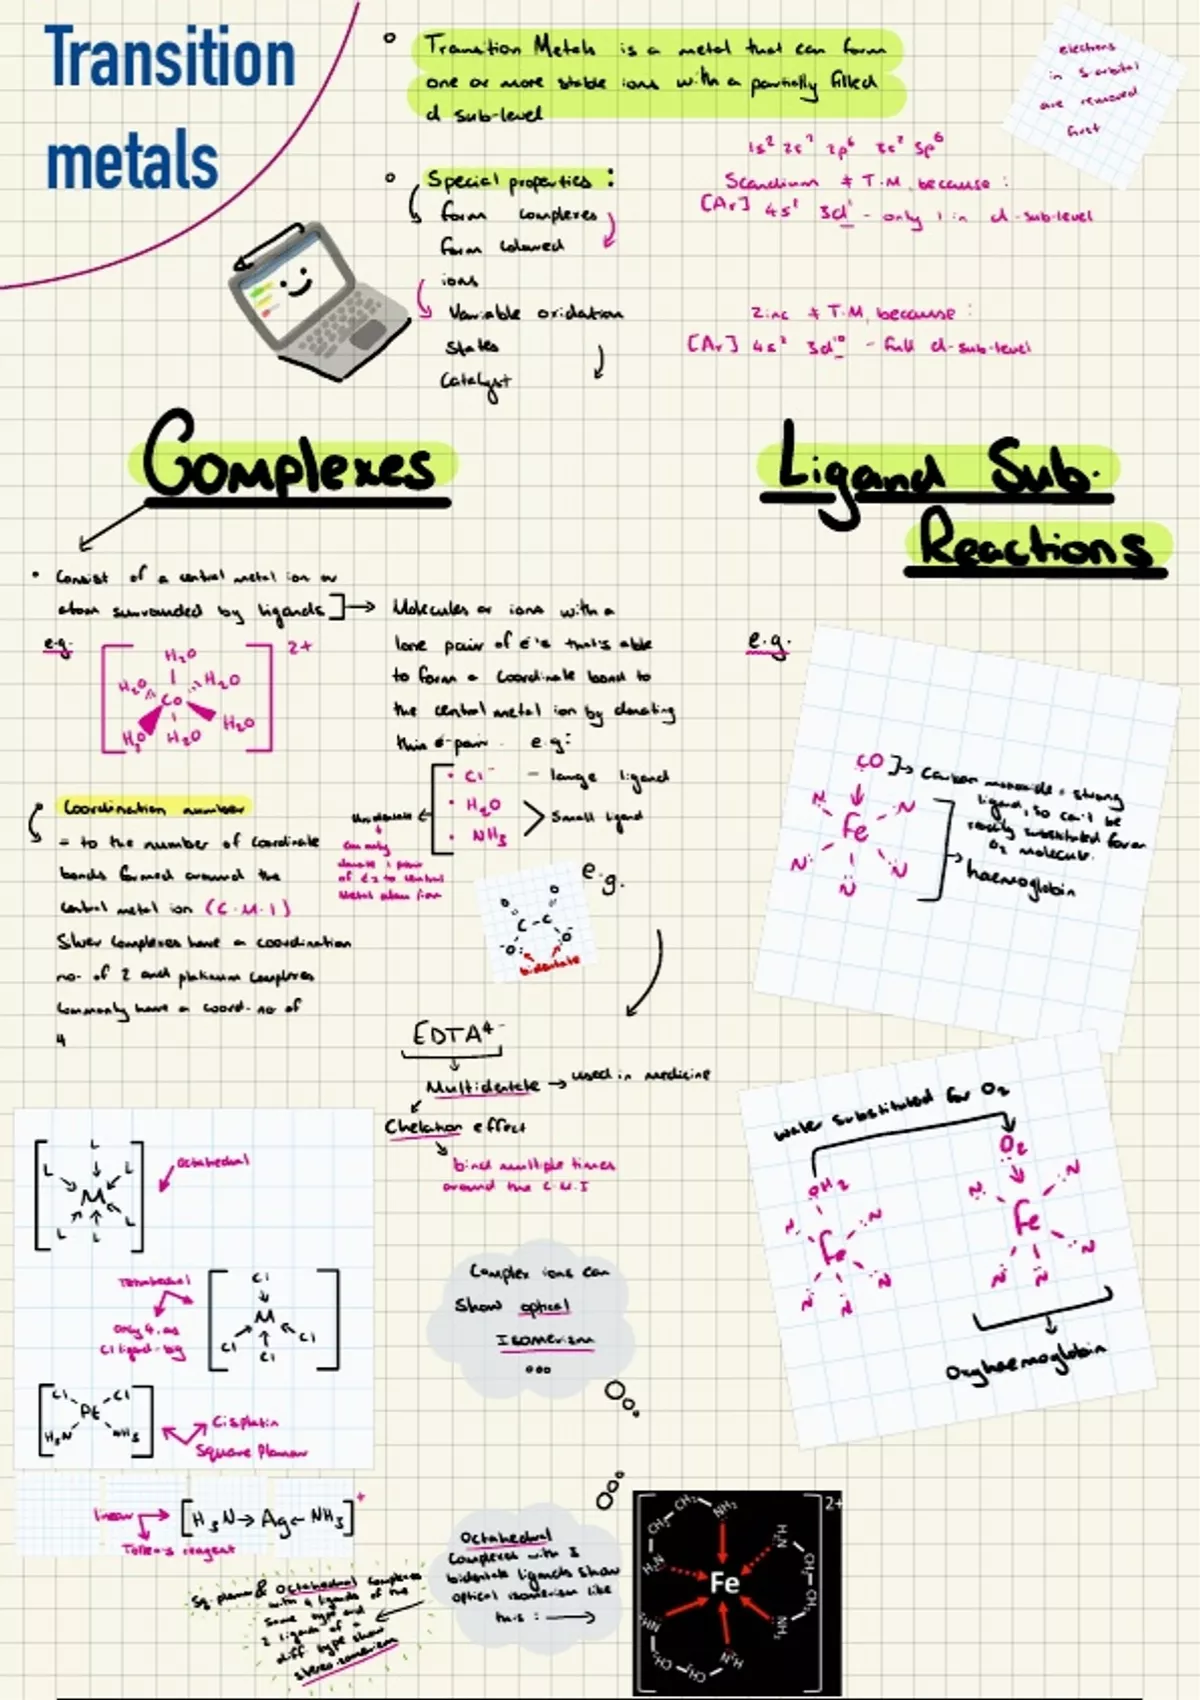 Transition
metals
Transition Metals is a metal that can form
one or more stable ions with a partially filled
d sub-level
electrons
in s-orbital
are removed
first
Special properties :
form complexes
form coloured
ions
Variable oxidation
States
Catalyst
1s² 2s² 2p⁶ 3s² 3p⁶
Scandium ≠ T.M, because :
[Ar] 4s¹ 3d¹ - only 1 in d-sub-level
Zinc ≠ T.M, because :
[Ar] 4s² 3d¹⁰ - full d-sub-level
Complexes
Consist of a central metal ion or
atom surrounded by ligands
e.g.
[ ] 2+
H₂O
H₂O H₂O
Co
H₂O H₂O H₂O
Molecules or ions with a
lone pair of e⁻'s that's able
to form a coordinate bond to
the central metal ion by donating
this e⁻pair. e.g:
Cl⁻ - large ligand
H₂O
NH₃
Small ligand
Unidentate
can only
donate 1 pair
of e's to central
metal atom/ion
Coordination number
= to the number of coordinate
bonds formed around the
central metal ion (C.M.I)
Silver complexes have a coordination
no. of 2 and platinum complexes
commonly have a coord. no of
4
e.g.
O O
C-C
⁻O: :O⁻
bidentate
EDTA⁴⁻
Multidentate → used in medicine
Chelation effect
bind multiple times
around the C.M.I
[ ]
L
L L
M
L L L
Octahedral
Tetrahedral
Only 4, as
Cl ligand - big
[ ]
Cl
M
Cl Cl Cl
[ ]
Cl Cl
Pt
H₃N NH₃
Cisplatin
Square Planar
linear
Tollen's reagent
[H₃N→Ag←NH₃]⁺
Complex ions can
Show optical
Isomerism
Octahedral
Complexes with 3
bidentate ligands show
optical isomerism like
this : →
Sq. planar & Octahedral complexes
with 4 ligands of the
same type and
2 ligands of a
diff type show
stereoisomerism
2+
CH₂ CH₂ NH₂
H₂N
Fe
H₂N
CH₂-CH₂
NH₂
NH₂
CH₂-CH₂
H₂N
Ligand Sub.
Reactions
e.g.
CO → Carbon monoxide = strong
ligand, so can't be
readily substituted for an
O₂ molecule.
N N
Fe
N N N
haemoglobin
water substituted for O₂
OH₂
N N
Fe
N N N
O₂
N N
Fe
N N N
Oxyhaemoglobin